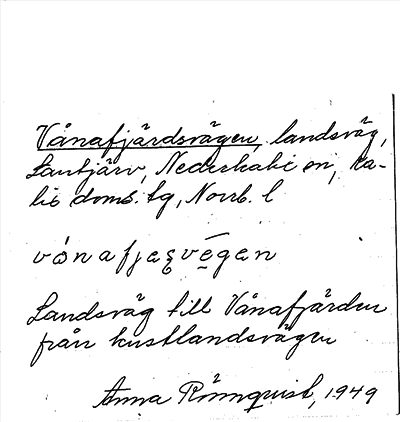 Vånafjärdsvägen, landsväg,
Lantjärv, Nederkalix sn, Ka-
lix doms. tg, Norrb. l
vånafjesvégen
Landsväg till Vånafjärden
från kustlandsvägen
Anna Rönnquist, 1949